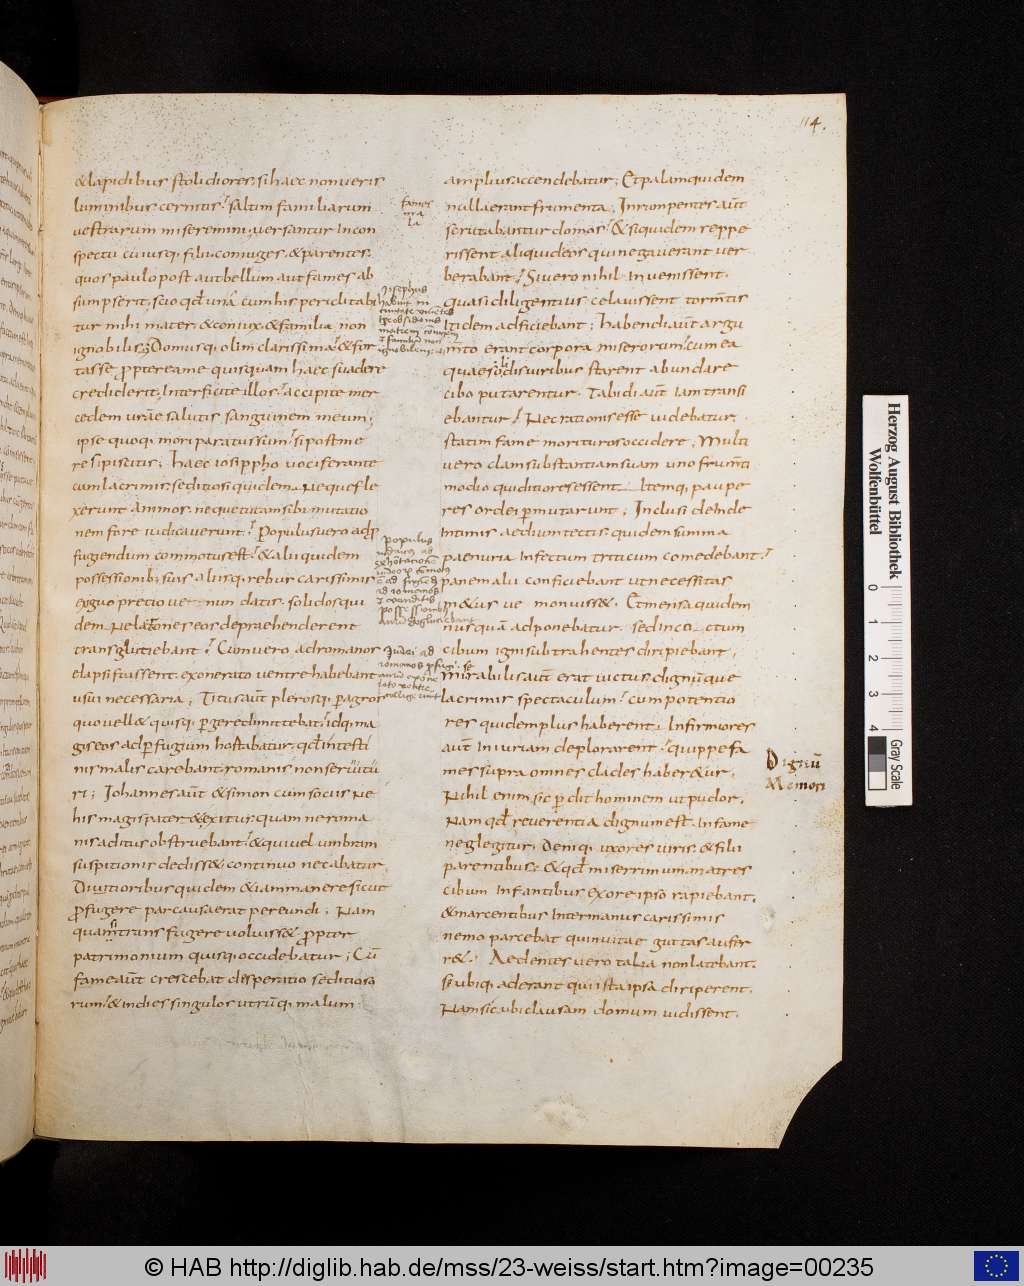 114.
& lapidibus stolidiores. si haec non veris
luminibus cernitis. saltim familiarum
vestrarum miseremini, versantur in con
spectu cuiusq; filii. coniuges. & parentes.
quos paulo post aut bellum aut fames ab
sumpserit, scio qđ unā cum his periclitabi
tur mihi mater, & coniux, & familia non
ignobilis, Domusq; olim clarissima, & for
tasse ꝓpterea me quisquam haec suadere
crediderit, Interficite illos, accipite mer
cedem urāe salutis sanguinem meum,
ipse quoq; mori paratus sum, si post me
resipiscitis; Haec iosippho vociferante
cum lacrimis, seditiosi quidem Neque fle
xerunt Animos, neque tutam sibi mutatio
nem fore iudicaverunt, Populus vero ad ꝑ
fugiendum commotus est, & alii quidem
possessionib; suis aliisq; rebus carissimis
exiguo precio venum datis. solidos qui
dem Ne latrones eos depraehenderent
transglutiebant, Cum vero ad romanos
elapsi fuissent. exonerato ventre habebant
usui necessaria, Titus aūt plerosq; ꝑ agros
quo vell& quisq; ꝑgere dimittebat, idq; ma
gis eos ad ꝑfugium hostabatur, qđ intesti
nis malis carebant, romanis non servitū
ri; Johannes aūt & simon cum sociis Ne
his magis pater& exitus, quam ne roma
nis aditus obstruebant, & qui vel umbram
suspitionis dediss& continuo necabatur,
Ditioribus quidem & iam manere sicut
ꝓfugere par causa erat pereundi, Nam
quam transfugere voluiss& ꝓpter
patrimonium quisq; occidebatur; Cū
fame aūt crescebat desperatio seditioso
rum, & in dies singulos utrūq; malum
amplius accendebatur, Et palam quidem
nulla erant frumenta, Inrumpentes aūt
scrutabantur domos, & siquidem reppe
rissent aliquid eos qui negaverant ver
berabant, Si vero nihil invenissent,
quasi diligentius celavissent tormtis
Itidem adficiebant; Habendi aūt argu
mto erant corpora miserorum, cum ea
quae solidis viribus starent abundare
cibo putarentur, Tabidi aūt Iam transi
ebantur, Nec rationis esse videbatur,
statim fame morituros occidere, Multi
vero clam substantiam suam uno frumti
modio qui ditiores essent Itemq; paupe
res ordei ꝑmutarunt; Inclusi deinde
Intimis aedium tectis, quidem summa
paenuria Infectum triticum comedebant,
panem alii conficiebant ut necessitas
m&us ve monuiss&, Et mensa quidem
nusquā adponebatur, sed incoctum
cibum igni subtrahentes diripiebant,
Mirabilis aūt erat victus, dignūque
lacrimis spectaculum, cum potentio
res quidem plus haberent, Infirmiores
aūt Iniuriam deplorarent, quippe fa
mes supra omnes clades haber&ur,
Nihil enim sic ꝑdit hominem ut pudor,
Nam qđ reverentia dignum est, In fame
neglegitur, Deniq; uxores viris, & filii
parentibus, & qđ miserrimum, matres
cibum Infantibus ex ore ipso rapiebant,
& marcentibus Inter manus carissimis
nemo parcebat quin vitae guttas aufer
r&, Aedentes vero talia non latebant,
Sed ubiq; aderant qui ista ipsa diriperent,
Nam sicubi clausam domum vidissent,
fames
mira
la
Josephus
habuit in
Populus
Iudei ad
romanos
Dignū
Memori
Herzog August Bibliothek
Wolfenbüttel
0 1 2 3 4
Gray Scale
© HAB http://diglib.hab.de/mss/23-weiss/start.htm?image=00235